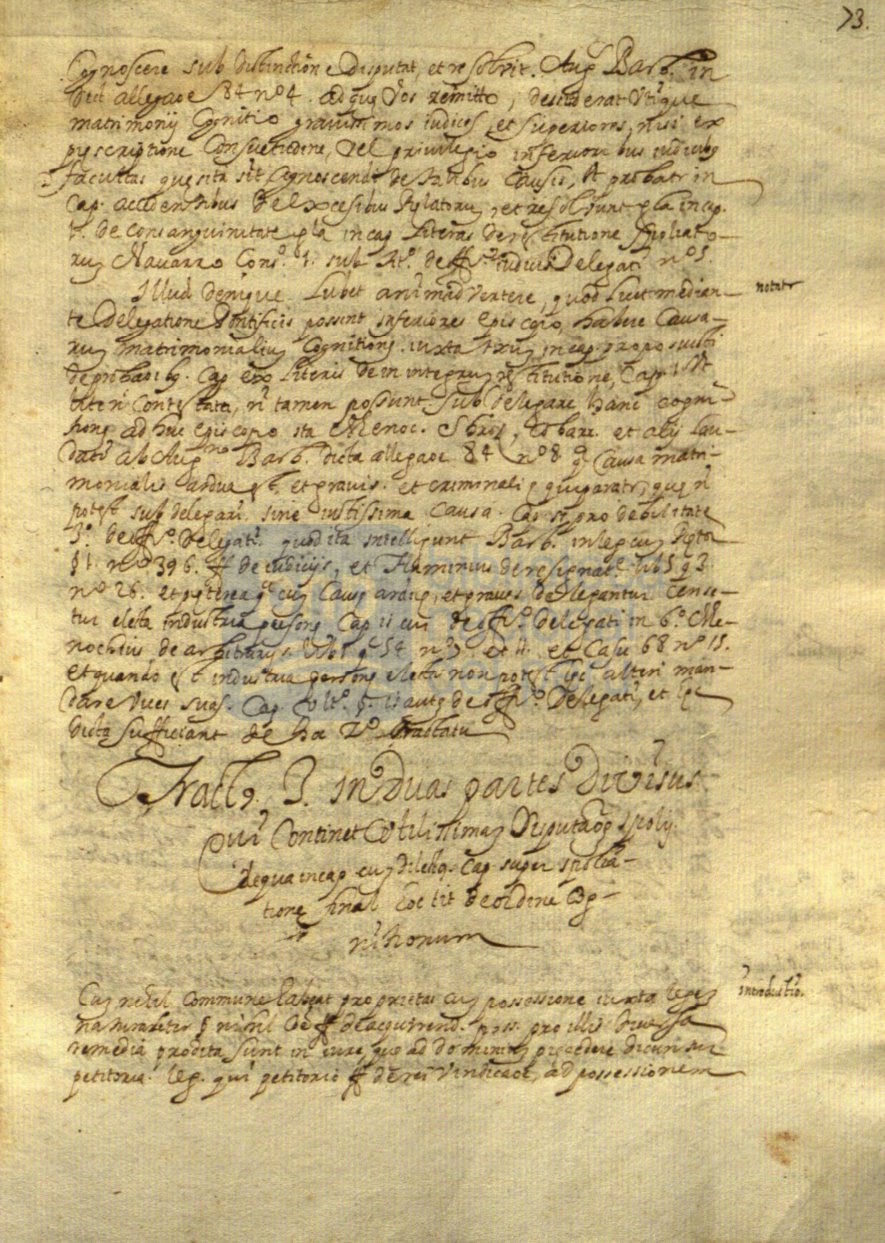 73.
Cognoscere sub distinctione disputat, et resolvit. Aug. Barb. in
dict allegaoe 84 nº 4. ad que vos remitto, desiderat utique
matrimonij Cognitio gravissimos iudices, et superiores, nisi ex
pręscriptione Consuetudine, vel privilegio inferioribus iudicibus
facultas quęsita sit cognoscendi de talibus causis, ut probatr in
Cap. accedentibus de excesibus Prelatoru, et resolvunt in cap.
1. de consanguinitate in cap Literas de restitutione spoliato-
rum Navarro Cons. 1. sub tt. de offº iudicis Delegati nº 5.
Illud denique lubet animadvertere, quod licet median-
notatr
te Delegatione Pontificis possint inferiores Episcopo habere Causa-
rum matrimonialium Cognitione iuxta in cap. proposuisti
de probaoibus. Cap ex Literis de in integrum restitutione, Cap. 1. ut
lite n Contestata, n tamen possunt sub delegare hanc cogni-
tione ad huc Episcopo ita Menoc. et alij lau-
dati ab Augno Barb. dicta allegaoe 84 nº 8 q Causa matri-
monialis ardua et gravis et criminali ęquiparatr, quę n
potest sub delegari sine iustissima causa. Cap. si pro debilitate
3º. de offº. Delegati. quod ita intelligunt Barb. in leg cum
§ 1. nº 396. ff de iudicijs, et Flaminius de resignat. lib 5 q 2.
nº 26. et pręterea cum Causę ardue, et graves delegantur Cense-
tur electa industria personę Cap is cui de offº. Delegati in 6º. Me-
nochius de arbitrarijs lib 1 q 54 nº et Casu 68 nº 15.
et quando est industria personę electa non potest ipse alteri man-
dare vices suas. Cap. ult. §. is autem de offº. Delegati, et
dicta sufficiant de hoc 2º tractatu
Tract. 3. in duas partes Divisus
Qui Continet utilissimam Disputaoem spolij.
de qua in cap. cum dilectus. Cap super spolia-
tione final de ordine Cog-
nitionum
Cum nihil commune habeat proprietas cum possessione iuxta legem
introductio.
naturaliter § nihil ff de acquirend. poss. pro illis diversa
remedia prodita sunt in iure, quę ad dominium dicuntur
petitoria. leg. qui petitorio ff de rei vindicaoe, ad possessionem